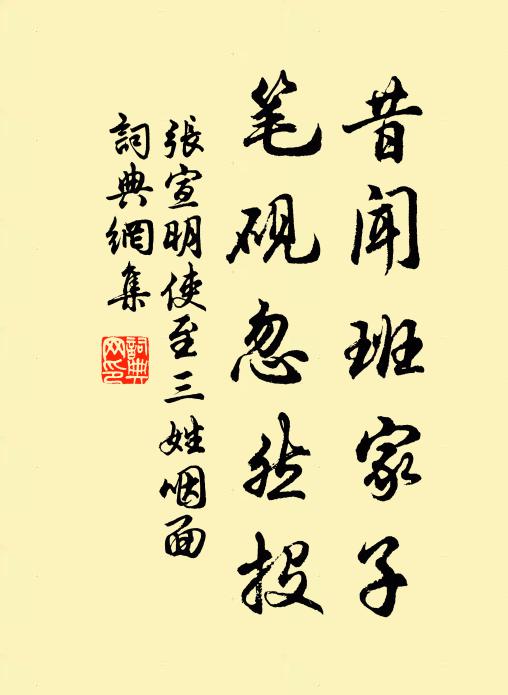 昔闻班家子
笔砚忽然投
張宣明使至三姓咽面
詞典網集
詞典网印